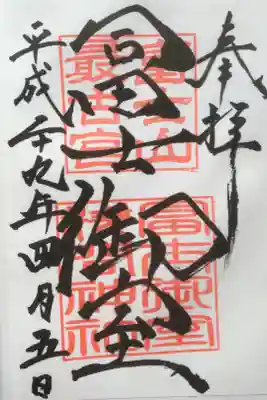 奉拝
冨士御室
平成廿九年四月五日
富士山
最古宮
冨士御室
浅間神社